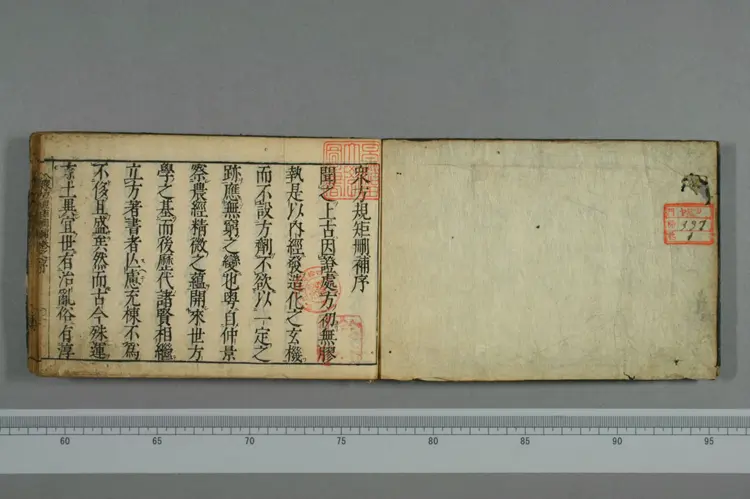 衆方規矩刪補序
聞之上古因證處方初無膠
執是以內經發造化之玄機
而不設方劑不欲以一定之
跡應無窮之變也粤自仲景
察農經精微之蘊開來世方
學之基而後歷代諸賢相繼
立方著書者汗
充棟不爲
不侈且盛矣然而古今殊運
土異宜世有治亂俗有淳
337
1
60 65 70 75 80 85 90 95